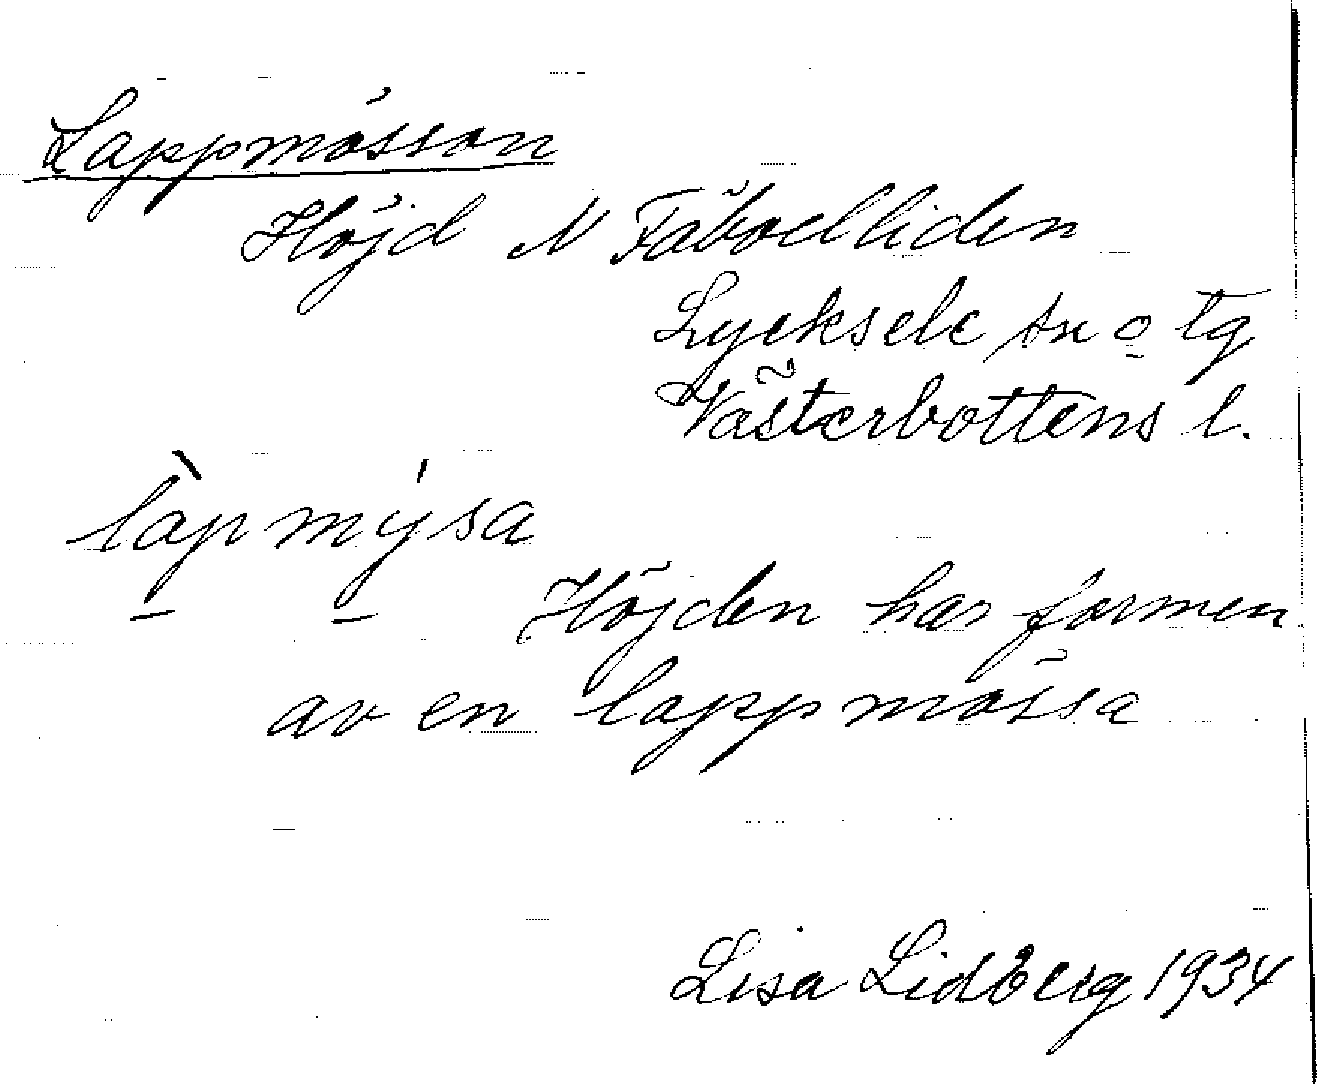 Lappmössan
Höjd N Fäbodliden
Lycksele sn o tg
Västerbottens l.
làpmýsa
Höjden har formen
av en lappmössa
Lisa Lidberg 1934